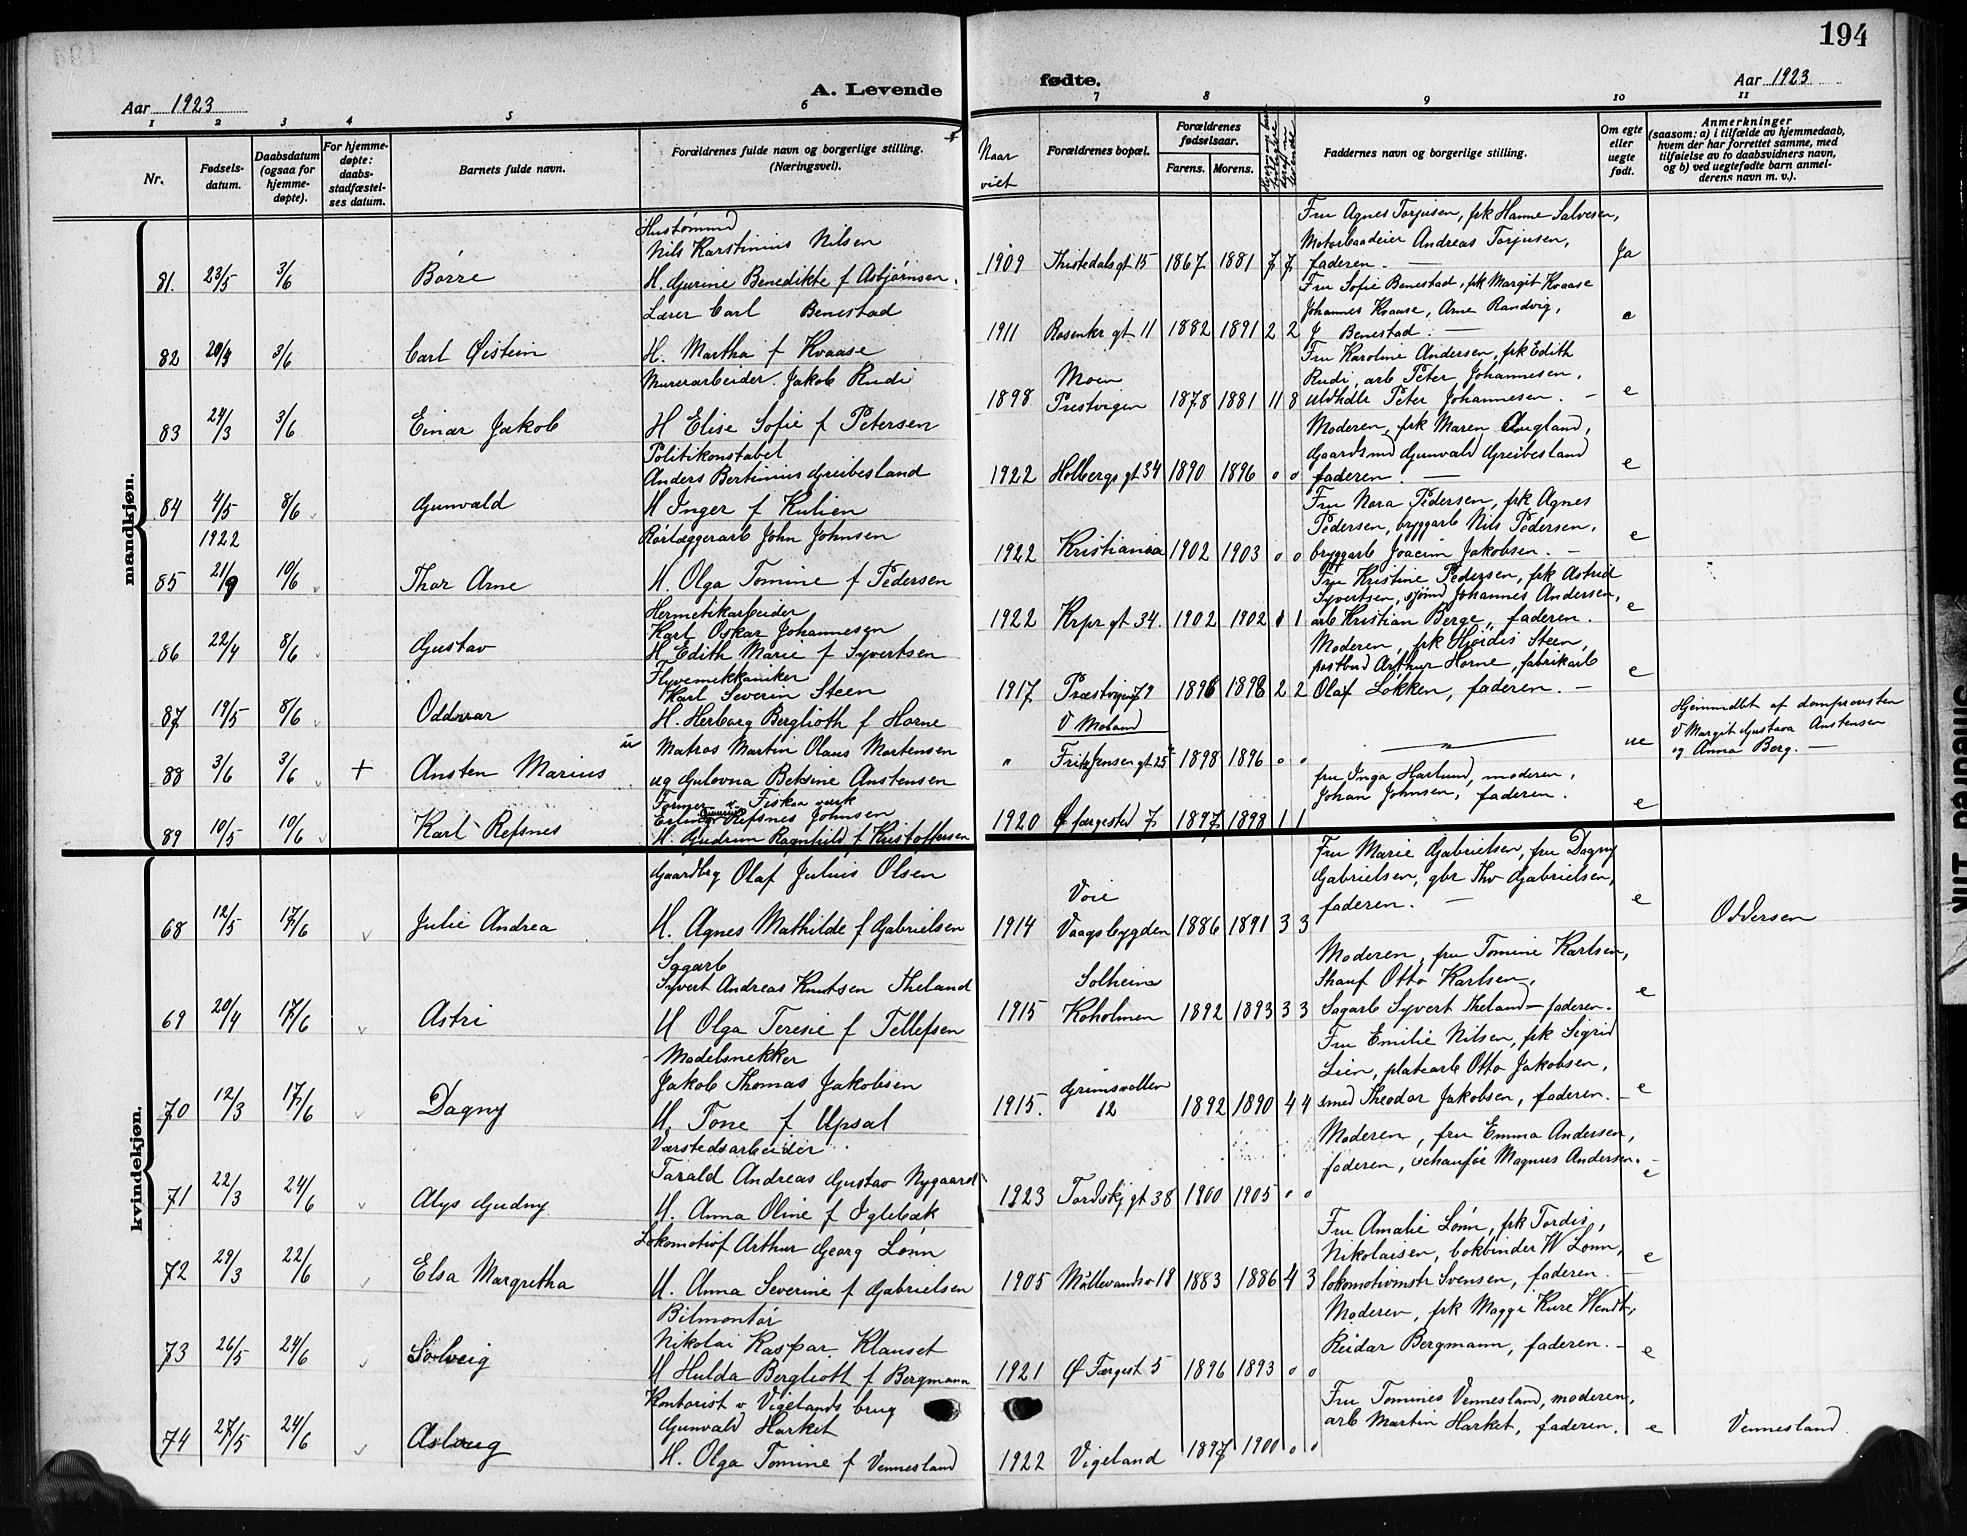 194
Aar 1923
A. Levende
fødte.
Aar 1923
1 2 3 4 5 6 7 8 9 10 11
Nr.
Fødsels-
datum.
Daabsdatum
(ogsaa for
hjemme-
døpte).
For hjemme-
døpte:
daabs-
stadfæstel-
ses datum.
Barnets fulde navn.
Forældrenes fulde navn og borgerlige stilling.
(Næringsvei).
Naar
viet
Forældrenes bopæl.
Forældrenes
fødselsaar.
Farens. Morens.
Faddernes navn og borgerlige stilling.
Om egte
eller
uegte
født.
Anmerkninger
(saasom: a) i tilfælde av hjemmedaab,
hvem der har forrettet samme, med
tilføielse av to daabsvidners navn,
og b) ved uegtefødte barn anmel-
derens navn m. v.).
mandkjøn.
81. 23/5 3/6 Børre
Hustømmd
Nils Karstinius Nilsen
H. Gurine Benedikte f Asbjørnsen.
1909 Thistedals gt 15 1867 1881 7 7
Fru Agnes Torjusen, frk Hanne Salvesen,
Motorbaadeier Andreas Torjusen,
faderen. —
Ja
82 20/4 3/6 Carl Øistein
Lærer Carl Benestad
H. Martha f Kvaase
1911 Rosenkr gt 11 1882 1891 2 2
Fru Sofie Benestad, frk Margit Kvaase
Johannes Kvaase, Arne Randvig,
J Benestad. —
e
83 24/3 3/6 Einar Jakob
Murerarbeider Jakob Rudi
H Elise Sofie f Petersen
1898 Moen
Prestvegen 1878 1881 11 8
Fru Karoline Andersen, frk Edith
Rudi, arb Peter Johannesen,
uldhdlr Peter Johannesen. —
e
84 4/5 8/6 Gunvald
Politikonstabel
Anders Bertinius Greibesland
H Inger f Kulien
1922 Holbergs gt 34 1890 1896 0 0
Moderen, frk Maren Augland,
Gaardsmd Gunvald Greibesland
faderen. —
e
85 1922
21/9 10/6 Thor Arne
Rørlæggerarb John Johnsen
H. Olga Tomine f Pedersen
1922 Kristiania 1902 1903 0 0
Fru Nora Pedersen, frk Agnes
Pedersen, bryggarb Nils Pedersen,
bryggarb Joacim Jakobsen. —
e
86 22/4 8/6 Gustav
Hermetikarbeider
Karl Oskar Johannesen
H Edith Marie f Syvertsen
1922 Krpr gt 34. 1902 1902 1 1
Fru Kristine Pedersen, frk Astrid
Syvertsen, sjømd Johannes Andersen,
arb Kristian Berge, faderen.
e
87 19/5 8/6 Oddvar
Flyvemekkaniker
Karl Severin Steen
H. Herborg Berglioth f Horne
1917 Præstvigen 79 1898 1898 2 2
Moderen, frk Hjørdis Steen,
postbud Arthur Horne, fabrikarb
Olaf Løkken, faderen. —
e
88 3/6 3/6 + Ansten Marius
u Matros Martin Olaus Mortensen
ug Gulovna Betsine Anstensen
" V Moland
Fritz Jensen gt 25 1898 1896 0 0
—
ue
Hjemmdbt af domprovsten
V Margit Gustava Anstensen
og Anna Berg. —
89 10/5 10/6 Karl Refsnes
Former v. Fiskaa verk
Erling Refsnes Johnsen
H. Gudrun Ragnhild f Kristoffersen
1920 Ø færgested 7 1897 1898 1 1
fru Inga Harlund, moderen,
Johan Johnsen, faderen.
e
kvindekjøn.
68 12/5 17/6 Julie Andrea
Gaardbrg Olaf Julius Olsen
H. Agnes Mathilde f Gabrielsen
1914 Voie
Vaagsbygden 1886 1891 3 3
Fru Marie Gabrielsen, fru Dagny
Gabrielsen, gbr Thv Gabrielsen,
faderen. —
e Oddersen
69 20/4 17/6 Astri
Sagarb
Syvert Andreas Knutsen Theland
H Olga Teresie f Tellefsen
1915 Solheim
Koholmen 1892 1893 3 3
Moderen, fru Tomine Karlsen,
Skauf Otto Karlsen,
Sagarb Syvert Theland — faderen.
e
70 12/3 17/6 Dagny
Modelsnekker
Jakob Thomas Jakobsen
H. Tone f Upsal
1915. Grimsvollen
12 1892 1890 4 4
Fru Emilie Nilsen, frk Sigrid
Lien, platearb Otto Jakobsen,
smed Theodor Jakobsen, faderen. —
e
71 22/3 24/6 Alys Gudny
Værstedsarbeider
Tarald Andreas Gustav Nygaard
H. Anna Oline f Iglebæk
1923 Tordskj gt 38 1900 1905 0 0
Moderen, fru Emma Andersen,
faderen, schaufør Magnus Andersen. —
e
72 29/3 22/6 Elsa Margretha
Lokomotivf Arthur Georg Lønn
H. Anna Severine f Gabrielsen
1905 Møllevandsv 18 1883 1886 4 3
Fru Amalie Lønn, frk Tordis,
Nikolaisen, bokbinder W Lønn,
lokomotivmstr Svensen, faderen. —
e
73 26/5 24/6 Solveig
Bilmontør
Nikolai Kaspar Klauset
H Hulda Bergliott f Bergmann
1921 Ø Færgest 5 1896 1893 0 0
Moderen, frk Maggi Kure Wendt,
Reidar Bergmann, faderen. —
e
74 27/5 24/6 Aslaug
Kontorist v Vigelands brug
Gunvald Harket
H. Olga Tomine f Vennesland
1922 Vigeland 1897 1900 0 0
Fru Tommes Vennesland, moderen,
arb Martin Harket, faderen.
e Vennesland